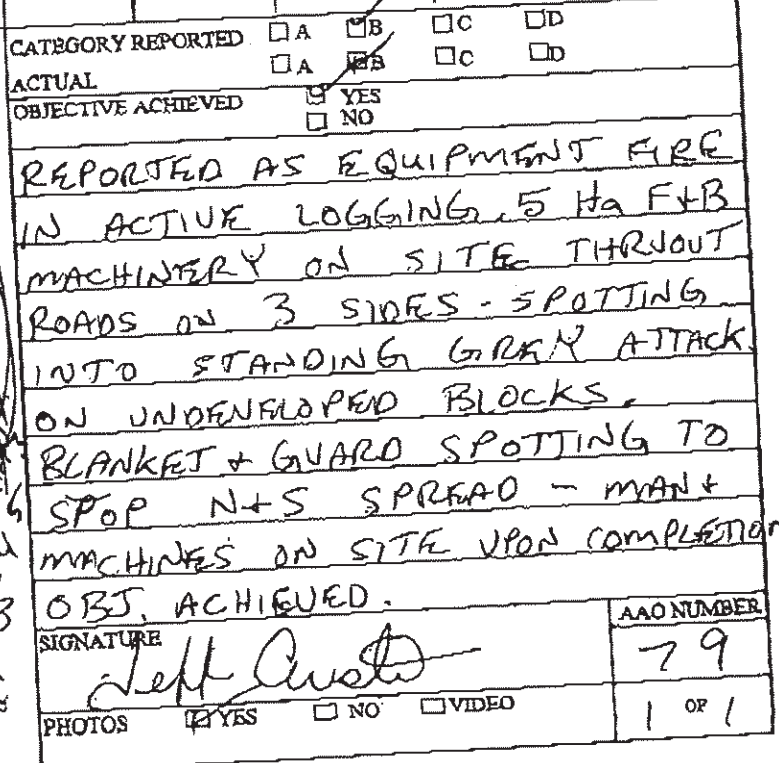 CATEGORY REPORTED ☐ A ☑ B ☐ C ☐ D
ACTUAL ☐ A ☑ B ☐ C ☐ D
OBJECTIVE ACHIEVED ☑ YES
☐ NO
REPORTED AS EQUIPMENT FIRE
IN ACTIVE LOGGING. 5 Ha F+B
MACHINERY ON SITE THRUOUT
ROADS ON 3 SIDES - SPOTTING
INTO STANDING GREY ATTACK.
ON UNDEVELOPED BLOCKS.
BLANKET + GUARD SPOTTING TO
SPOP N+S SPREAD - MAN +
MACHINES ON SITE UPON COMPLETION
OBJ. ACHIEVED.
SIGNATURE
AAO NUMBER
Jeff
79
PHOTOS ☑ YES ☐ NO ☐ VIDEO
1 OF 1